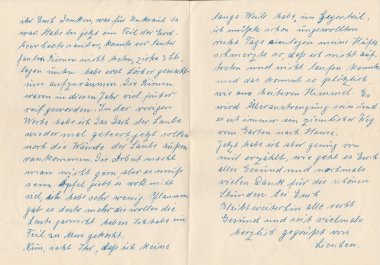 ihr Euch denken, was für Unkraut es
war. Habe bis jetzt ein Teil der Erd-
beerbeete sauber, konnte vor lauter
faulen Birnen nicht treten, zirka 3 Ztr.
lagen unten habe erst Löcher gemacht
um aufzuräumen. Die Birnen
waren in diesem Jahr viel früher
reif geworden. In der vorigen
Woche habe ich das Dach der Laube
wieder mal geteert, jetzt sollen
noch die Wände der Laube außen
drankommen. Die Arbeit macht
man nicht gern, aber es muß
sein. Äpfel gibt es wohl nicht
viel, ich habe sehr wenig Pflaumen
gab es desto mehr die wollen die
Leute garnicht haben. Ich habe ein
Teil zu Mus gekocht.
Nun, seht Ihr, daß ich keine
lange Weile habe, im Gegenteil,
ich müßte schon ungewollten
ruhe Tage einlegen meine Hüfte
schmerzte so daß ich nicht auf-
treten und nicht laufen konnte
und das kommt so plötzlich
wie aus heiterem Himmel. Es
wird Überanstrengung sein und
es ist immer ein ziemlicher Weg
vom Garten nach Hause.
Jetzt habe ich aber genug von
mir erzählt, wie geht es Euch
alles Gesund und nochmals
vielen Dank für die schönen
Stunden bei Euch.
Bleibt weiterhin alle recht
Gesund und seit vielmals
herzlich gegrüßt von
Lieschen.